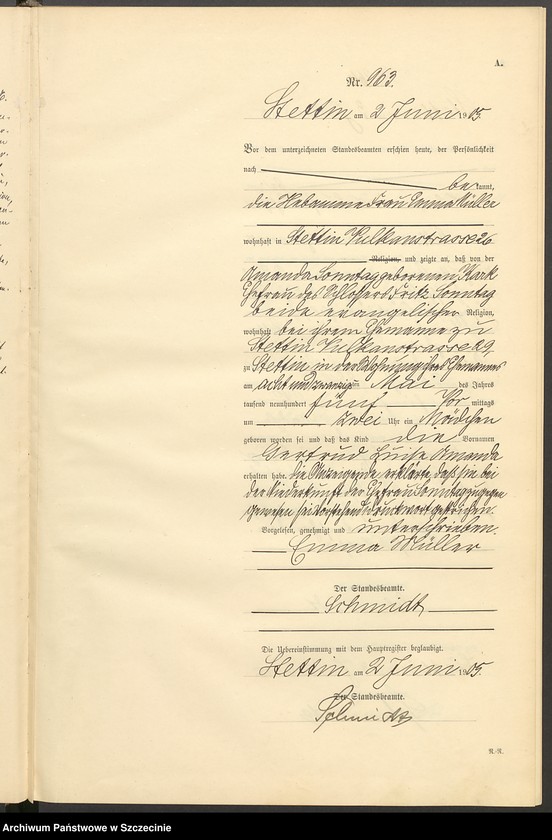 A.
Nr. 963.
Stettin am 2 Juni 1905
Vor dem unterzeichneten Standesbeamten erschien heute, der Persönlichkeit
nach
bekannt,
die Hebamme Frau Emma Müller
wohnhaft in Stettin Vulkanstrasse 26
Religion, und zeigte an, daß von der
Amanda Sonntag geborenen Mark
Ehefrau des Schlossers Fritz Sonntag
beide evangelischer Religion,
wohnhaft bei ihrem Ehemanne zu
Stettin Vulkanstrasse 29,
zu Stettin in der Wohnung ihres Ehemannes
am acht und zwanzigsten Mai des Jahres
tausend neunhundert fünf Vor mittags
um zwei Uhr ein Mädchen
geboren worden sei und daß das Kind die Vornamen
Gertrud Luise Amanda
erhalten habe. die Anzeigende erklärte, daß sie bei
der Niederkunft der Ehefrau Sonntag zugegen
gewesen sei. Vorstehend 1 Druckwort gestrichen.
Vorgelesen, genehmigt und unterschrieben.
Emma Müller
Der Standesbeamte.
Schmidt
Die Uebereinstimmung mit dem Hauptregister beglaubigt.
Stettin am 2 Juni 1905.
Der Standesbeamte.
Schmidt
Archiwum Państwowe w Szczecinie